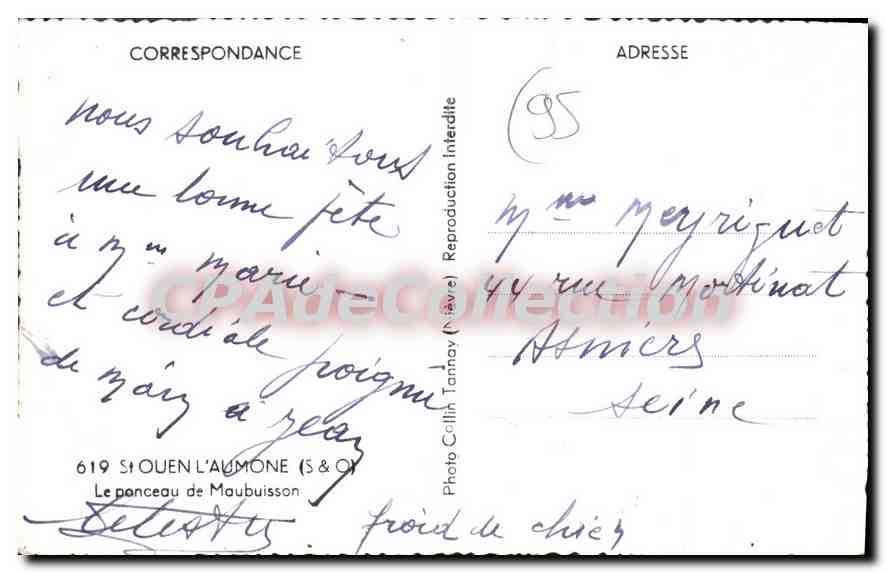 CORRESPONDANCE
nous souhaitons
une bonne fête
à Mme Marie –
et cordiale poignée
de main à Jean
619 St OUEN L'AUMONE (S & O)
Le ponceau de Maubuisson
froid de chien
Photo Collin Tannay (Nièvre) Reproduction Interdite
ADRESSE
(95
Mme Meyriguet
44 rue Mortinat
Asniers
Seine
CPAdeCollection.com